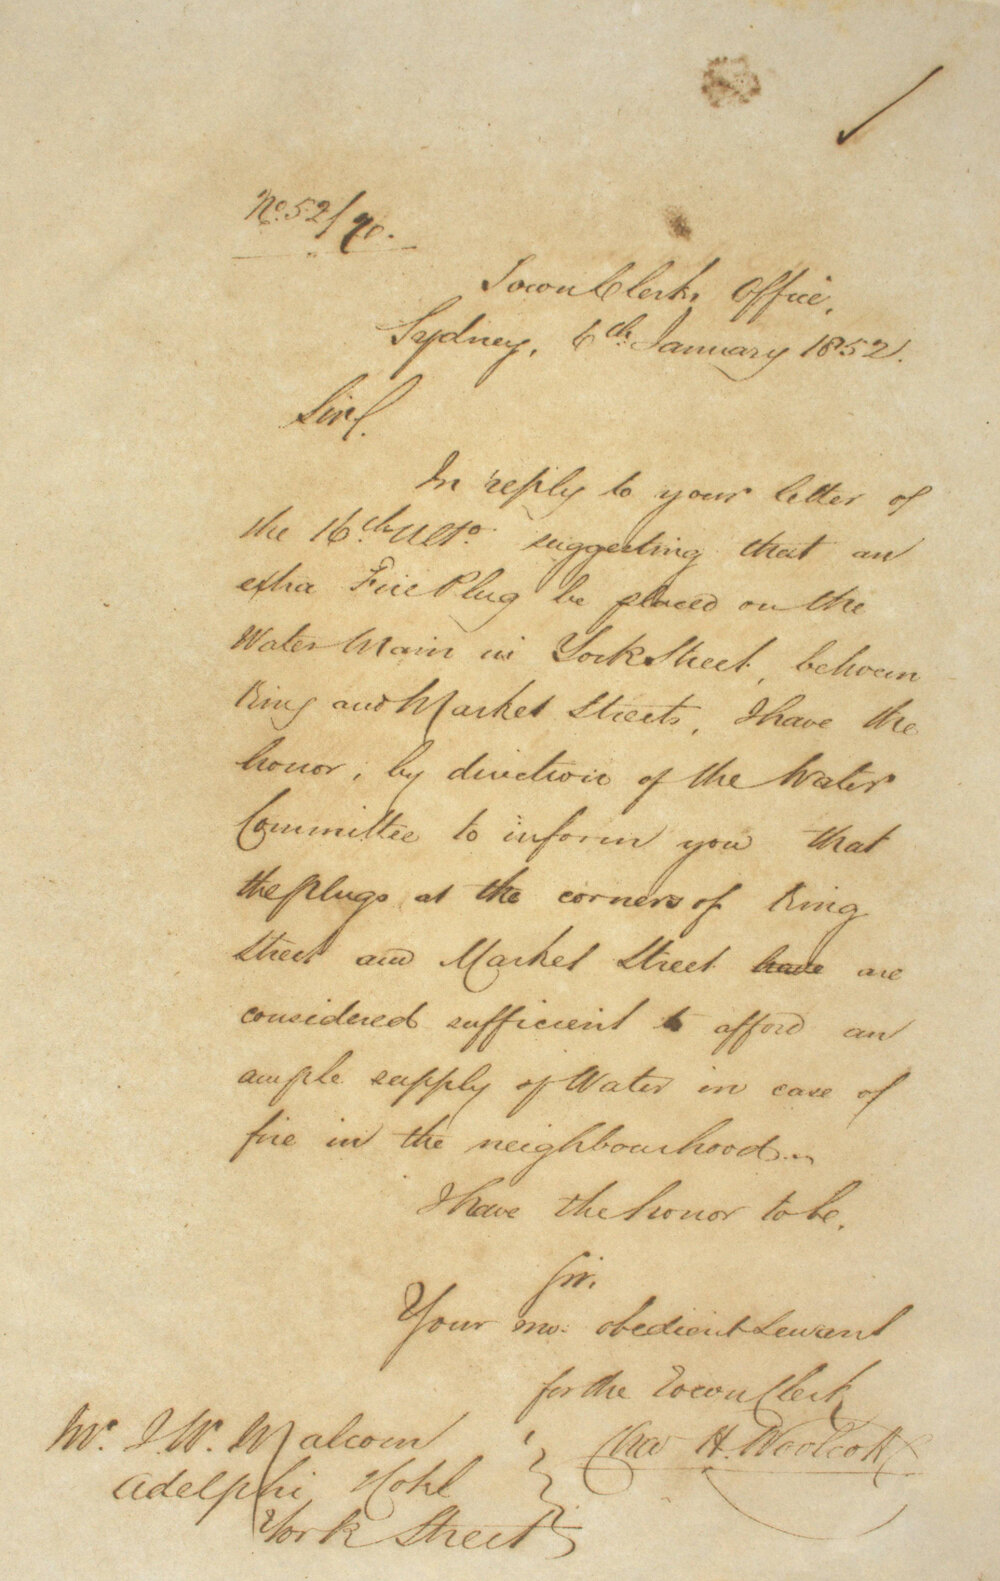 No. 52/70.
Town Clerks Office,
Sydney, 6th January 1852.
Sir,
In reply to your letter of
the 16th Ulto. suggesting that an
extra Fire Plug be placed on the
Water Main in York Street, between
King and Market Streets, I have the
honor, by direction of the Water
Committee to inform you that
the plugs at the corners of King
Street and Market Street have are
considered sufficient to afford an
ample supply of Water in case of
fire in the neighbourhood.
I have the honor to be,
Sir,
Your mo: obedient Servant
for the Town Clerk
Chas H. Woolcott
Mr. J. W. Malcom
Adelphi Hotel
York Street